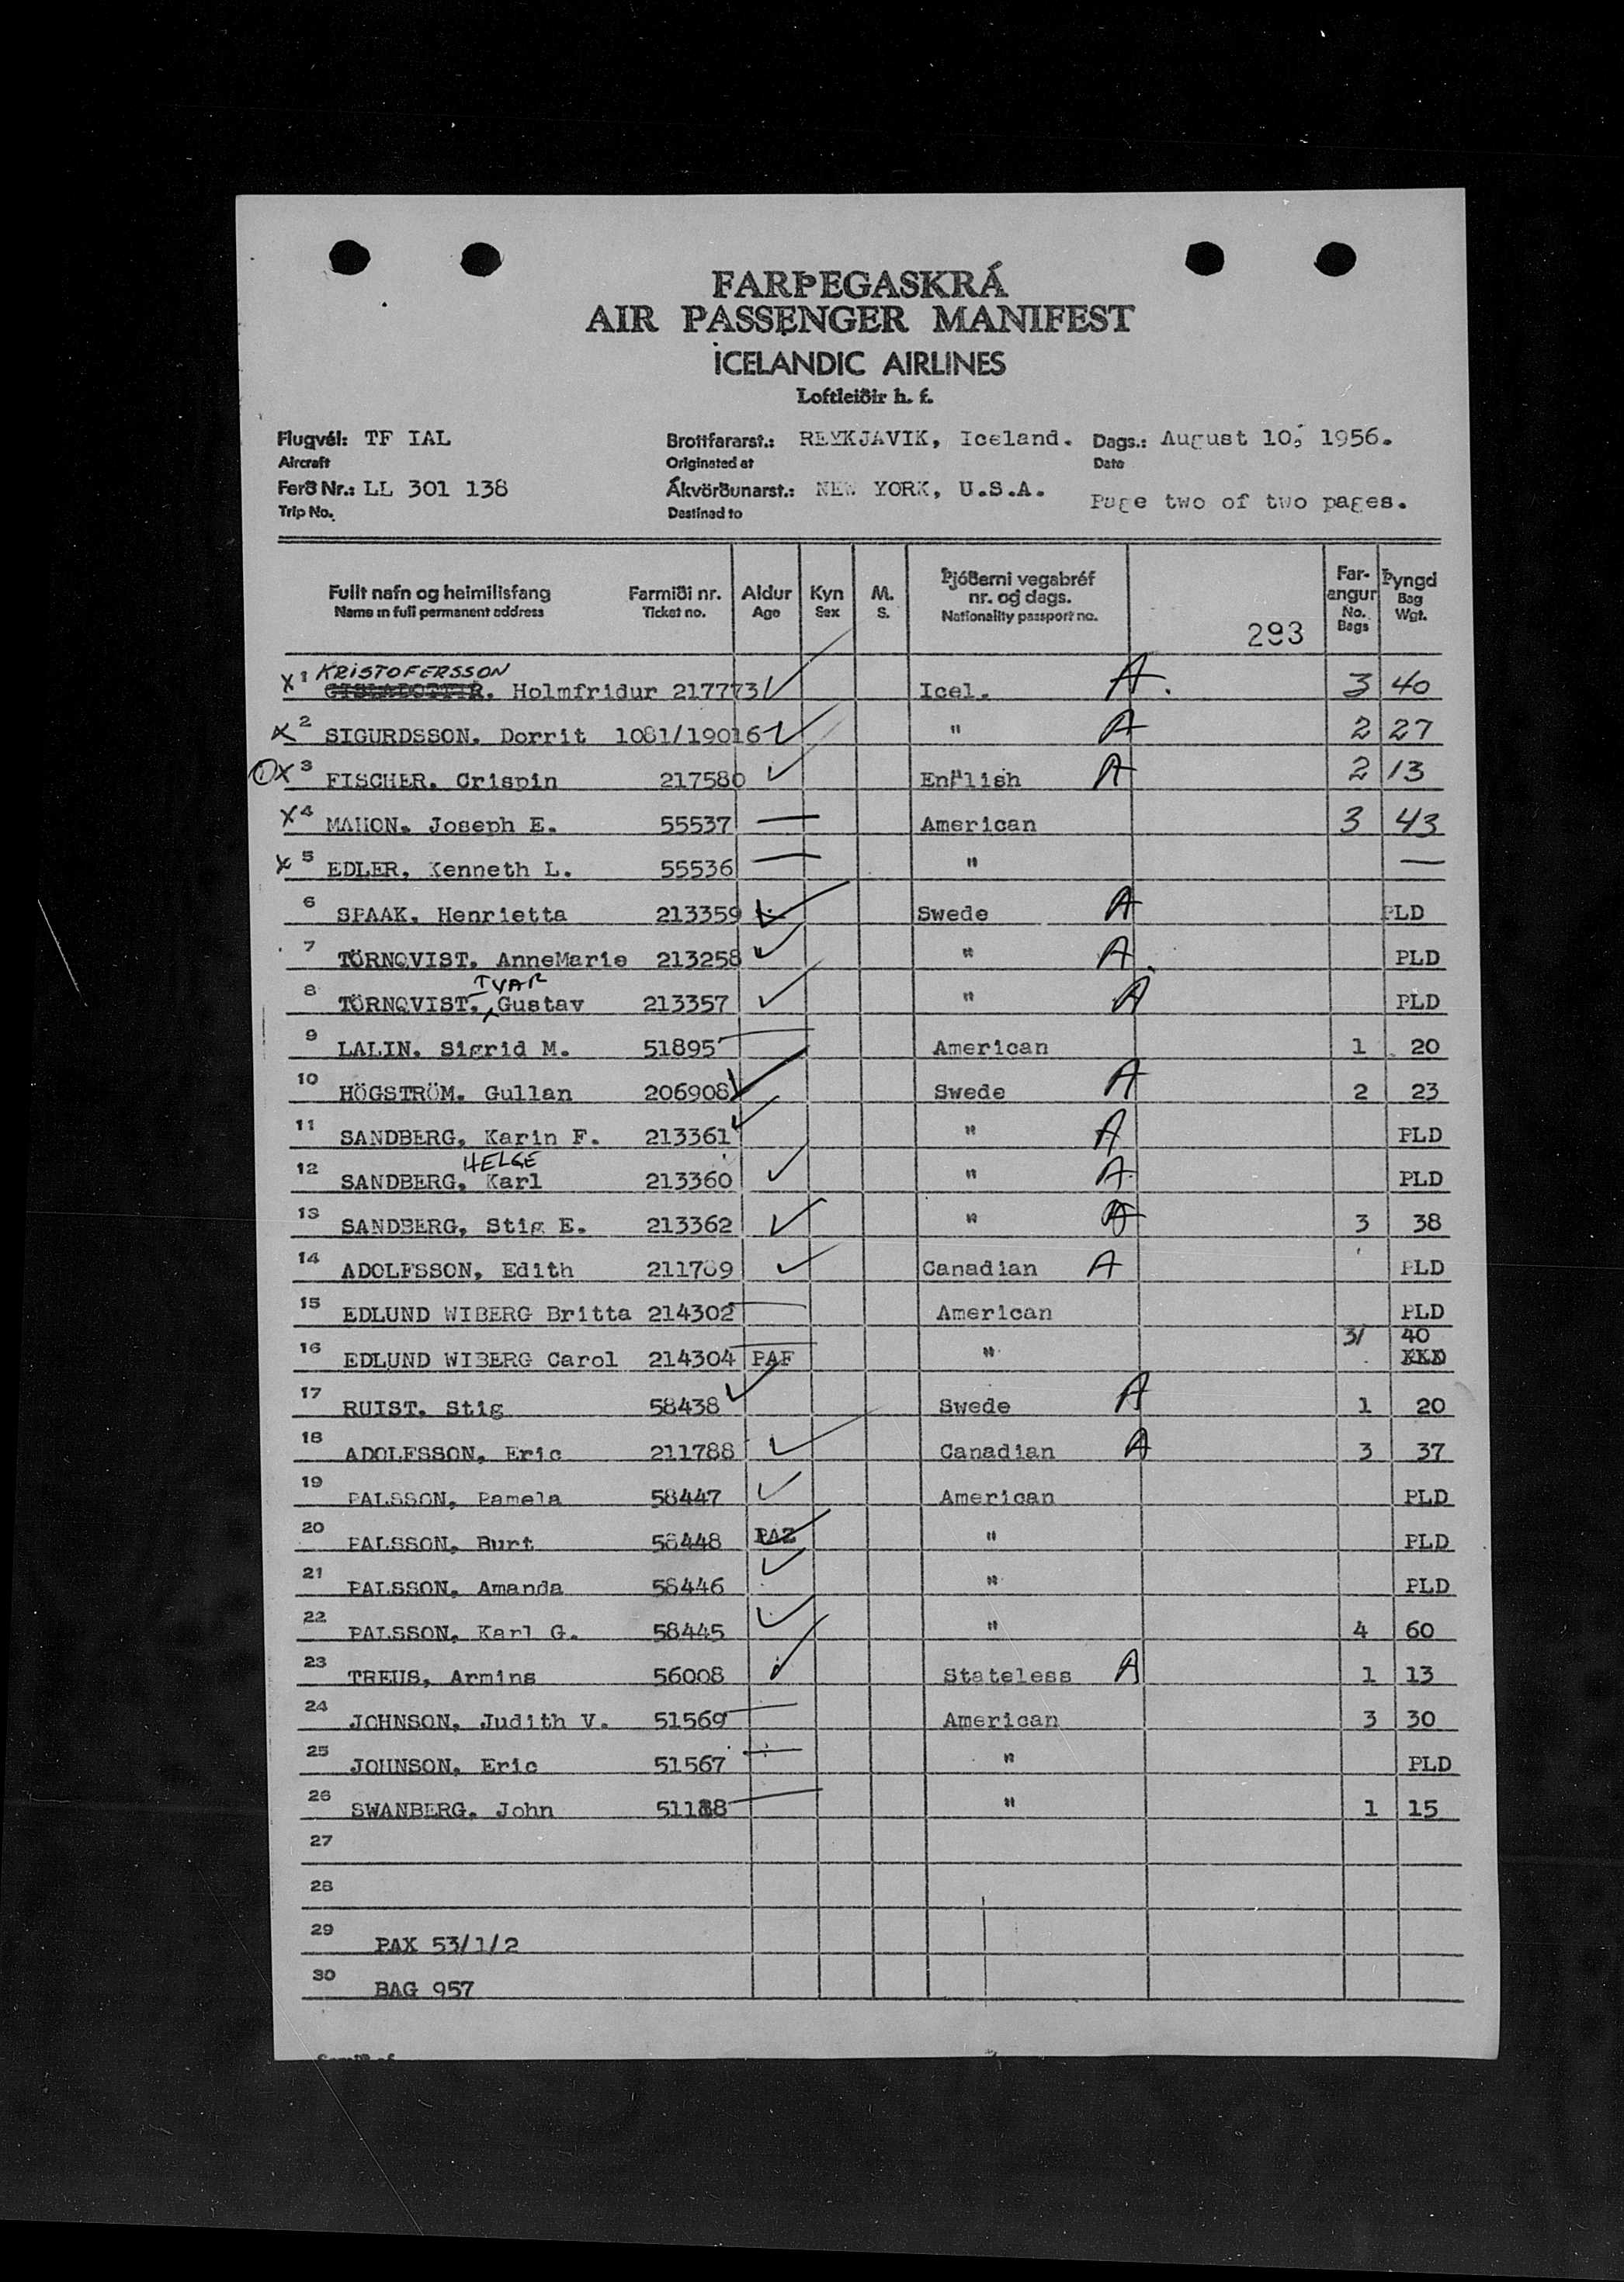 FARÞEGASKRÁ
AIR PASSENGER MANIFEST
ICELANDIC AIRLINES
Loftleiðir h. f.
Flugvél: TF IAL Brottfararst.: REYKJAVIK, Iceland. Dags.: August 10, 1956.
Aircraft Originated at Date
Ferð Nr.: LL 301 138 Ákvörðunarst.: NEW YORK, U.S.A. Page two of two pages.
Trip No. Destined to
Fullt nafn og heimilisfang Farmiði nr. Aldur Kyn M. Þjóðerni vegabréf nr. og dags. Far-angur Þyngd
Name in full permanent address Ticket no. Age Sex S. Nationality passport no. 293 No. Bags Bag Wgt.
KRISTOFERSSON
X 1 Holmfridur 217773 Icel. A. 3 40
X 2 SIGURDSSON, Dorrit 1081/19016 " A 2 27
X 3 FISCHER, Crispin 217580 English A 2 13
X 4 MAHON, Joseph E. 55537 — American 3 43
X 5 EDLER, Kenneth L. 55536 — " —
6 SPAAK, Henrietta 213359 Swede A PLD
7 TÖRNQVIST, AnneMarie 213258 " A. PLD
IVAR
8 TÖRNQVIST, Gustav 213357 " A PLD
9 LALIN, Sigrid M. 51895 American 1 20
10 HÖGSTRÖM, Gullan 206908 Swede A 2 23
11 SANDBERG, Karin F. 213361 " A PLD
HELGE
12 SANDBERG, Karl 213360 " A PLD
13 SANDBERG, Stig E. 213362 " A 3 38
14 ADOLFSSON, Edith 211789 Canadian A PLD
15 EDLUND WIBERG Britta 214302 American PLD
16 EDLUND WIBERG Carol 214304 PAF " 3/ 40
17 RUIST, Stig 58438 Swede A 1 20
18 ADOLFSSON, Eric 211788 Canadian A 3 37
19 PALSSON, Pamela 58447 American PLD
20 PALSSON, Burt 58448 " PLD
21 PALSSON, Amanda 58446 " PLD
22 PALSSON, Karl G. 58445 " 4 60
23 TREUS, Armins 56008 Stateless A 1 13
24 JOHNSON, Judith V. 51569 American 3 30
25 JOHNSON, Eric 51567 " PLD
26 SWANBERG, John " 1 15
27
28
29 PAX 53/1/2
30 BAG 957